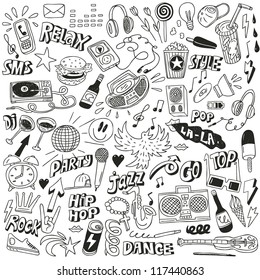 RELAX
SMS
STYLE
POP
LA-LA
DJ
PARTY
JAZZ
GO
TOP
HIP
HOP
ROCK
DANCE
117440863